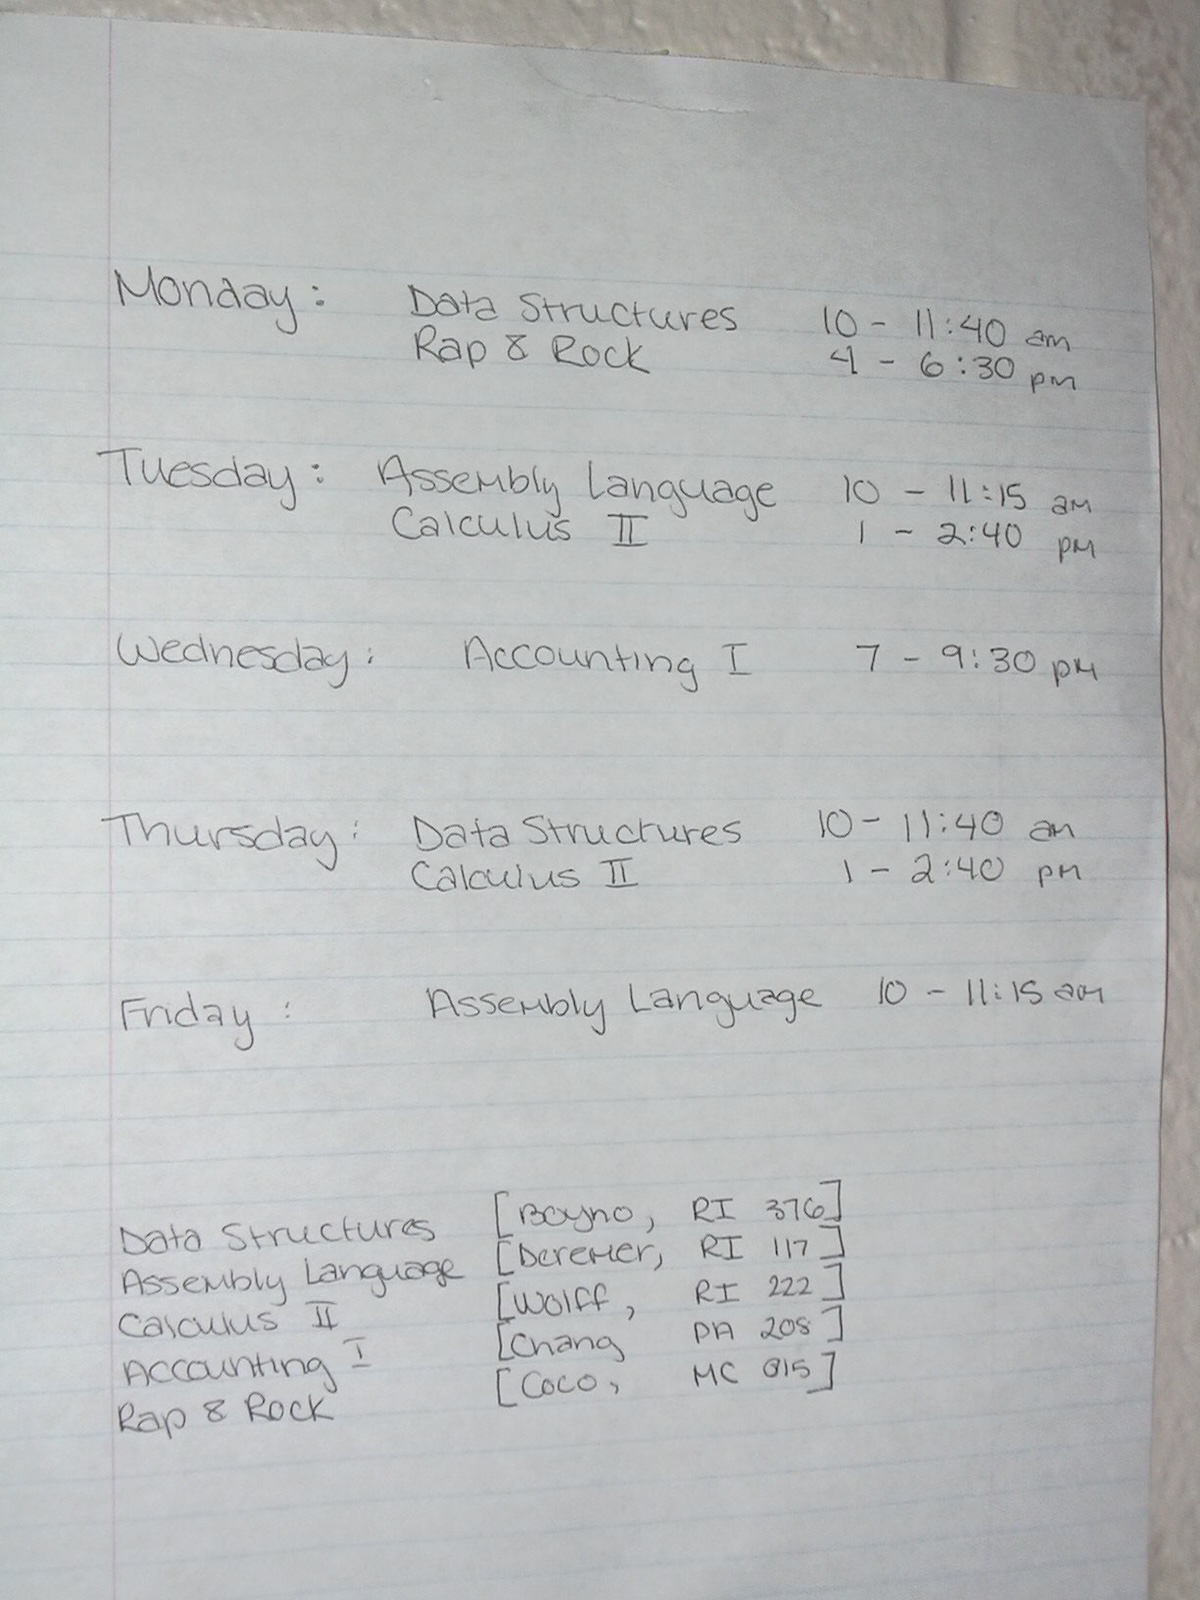 Monday: Data Structures 10 - 11:40 am
Rap & Rock 4 - 6:30 pm
Tuesday: Assembly Language 10 - 11:15 am
Calculus II 1 - 2:40 pm
Wednesday: Accounting I 7 - 9:30 pm
Thursday: Data Structures 10 - 11:40 am
Calculus II 1 - 2:40 pm
Friday: Assembly Language 10 - 11:15 am
Data Structures [Boyno, RI 376]
Assembly Language [Deremer, RI 117]
Calculus II [Wolff, RI 222]
Accounting I [Chang PA 208]
Rap & Rock [Coco, MC 015]